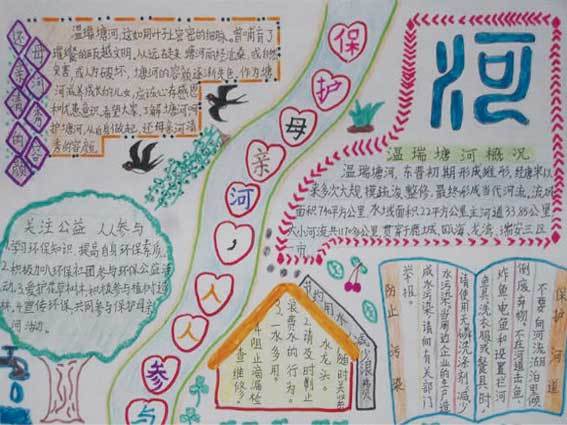 还母亲河清秀的容颜
温瑞塘河,这如同叶子上密密的细脉。曾哺育了
璀璨的瓯越文明,从远古走来,塘河历经沧桑,或自然
灾害,或人为破坏,塘河的容颜逐渐失色。作为塘
河滋养成长的儿女,应该心存感恩
和忧患意识。希望大家,了解塘河,呵
护塘河,从自身做起,还母亲河清
秀的容颜。
保护母亲河,人人参与
河
温瑞塘河概况
温瑞塘河,东晋初期形成雏形,经唐宋以
来多次大规模疏浚整修,最终形成当代河流。流域
面积740平方公里,水域面积22平方公里,主河道33.85公里
大小河流共1178多公里,贯穿鹿城、瓯海、龙湾、瑞安三区
一市
关注公益 人人参与
1.学习环保知识,提高自身环保素质。
2.积极加入环保社团参与环保公益活
动。3.爱护花草树木,积极参与植树造
林。4.宣传环保,共同参与保护母亲
河活动。
节约用水
减少浪费
1.随时关紧
水龙头。
2.请及时制止
浪费水的行为。
3.一水多用。
4.阻止滴漏,检
查维修。
保护河道
不要向河流、湖泊里倾
倒废弃物。不在河道击鱼、
炸鱼、电鱼和设置拦河
鱼具。洗衣服或餐具时,
请使用无磷洗涤剂,减少
水污染。当周边企业的生产造
成水污染,请向有关部门
举报。
防止污染